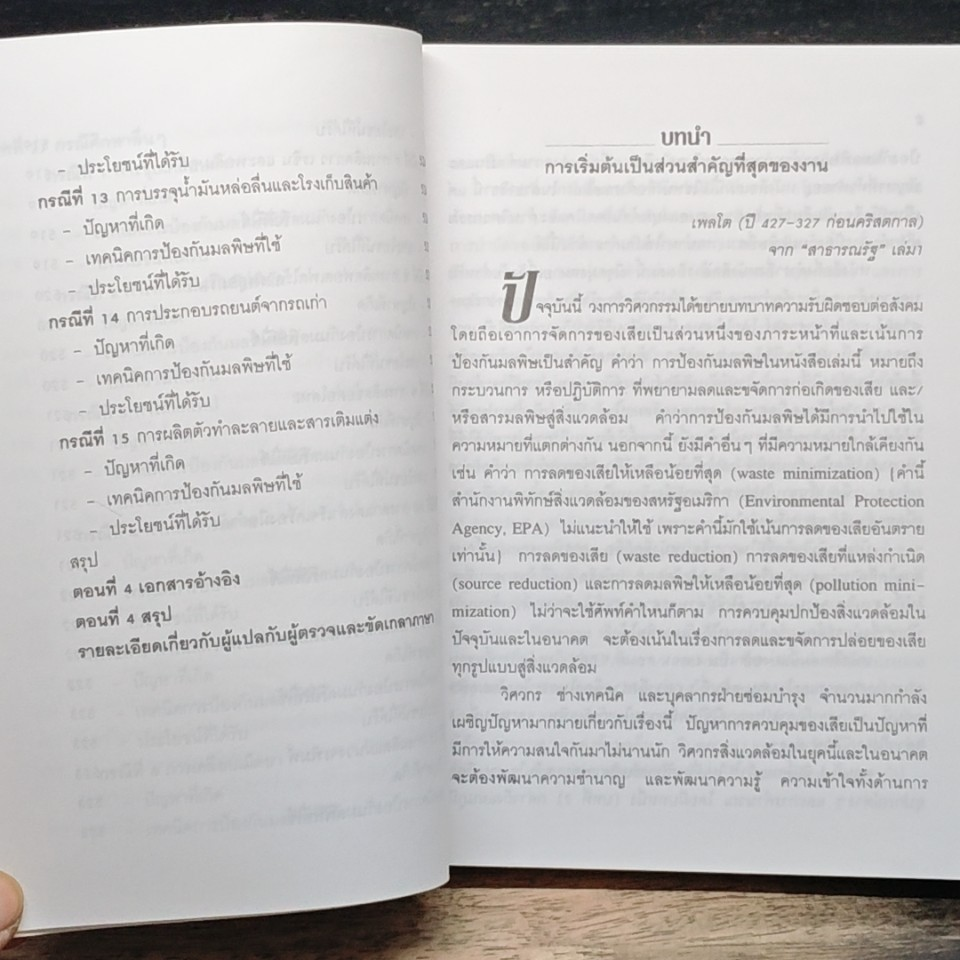 - ประโยชน์ที่ได้รับ
กรณีที่ 13 การบรรจุน้ำมันหล่อลื่นและโรงเก็บสินค้า
- ปัญหาที่เกิด
- เทคนิคการป้องกันมลพิษที่ใช้
- ประโยชน์ที่ได้รับ
กรณีที่ 14 การประกอบรถยนต์จากรถเก่า
- ปัญหาที่เกิด
- เทคนิคการป้องกันมลพิษที่ใช้
- ประโยชน์ที่ได้รับ
กรณีที่ 15 การผลิตตัวทำละลายและสารเติมแต่ง
- ปัญหาที่เกิด
- เทคนิคการป้องกันมลพิษที่ใช้
- ประโยชน์ที่ได้รับ
สรุป
ตอนที่ 4 เอกสารอ้างอิง
ตอนที่ 4 สรุป
รายละเอียดเกี่ยวกับผู้แปลกับผู้ตรวจและขัดเกลาภาษา
บทนำ
การเริ่มต้นเป็นส่วนสำคัญที่สุดของงาน
เพลโต (ปี 427-327 ก่อนคริสตกาล)
จาก "สาธารณรัฐ" เล่ม1
ปัจจุบันนี้ วงการวิศวกรรมได้ขยายบทบาทความรับผิดชอบต่อสังคม
โดยถือเอาการจัดการของเสียเป็นส่วนหนึ่งของภาระหน้าที่และเน้นการ
ป้องกันมลพิษเป็นสำคัญ คำว่า การป้องกันมลพิษในหนังสือเล่มนี้ หมายถึง
กระบวนการ หรือปฏิบัติการ ที่พยายามลดและขจัดการก่อเกิดของเสีย และ/
หรือสารมลพิษสู่สิ่งแวดล้อม คำว่าการป้องกันมลพิษได้มีการนำไปใช้ใน
ความหมายที่แตกต่างกัน นอกจากนี้ ยังมีคำอื่นๆ ที่มีความหมายใกล้เคียงกัน
เช่น คำว่า การลดของเสียให้เหลือน้อยที่สุด (waste minimization) {คำนี้
สำนักงานพิทักษ์สิ่งแวดล้อมของสหรัฐอเมริกา (Environmental Protection
Agency, EPA) ไม่แนะนำให้ใช้ เพราะคำนี้มักใช้เน้นการลดของเสียอันตราย
เท่านั้น} การลดของเสีย (waste reduction) การลดของเสียที่แหล่งกำเนิด
(source reduction) และการลดมลพิษให้เหลือน้อยที่สุด (pollution mini-
mization) ไม่ว่าจะใช้ศัพท์คำไหนก็ตาม การควบคุมปกป้องสิ่งแวดล้อมใน
ปัจจุบันและในอนาคต จะต้องเน้นในเรื่องการลดและขจัดการปล่อยของเสีย
ทุกรูปแบบสู่สิ่งแวดล้อม
วิศวกร ช่างเทคนิค และบุคลากรฝ่ายซ่อมบำรุง จำนวนมากกำลัง
เผชิญปัญหามากมายเกี่ยวกับเรื่องนี้ ปัญหาการควบคุมของเสียเป็นปัญหาที่
มีการให้ความสนใจกันมาไม่นานนัก วิศวกรสิ่งแวดล้อมในยุคนี้และในอนาคต
จะต้องพัฒนาความชำนาญ และพัฒนาความรู้ ความเข้าใจทั้งด้านการ